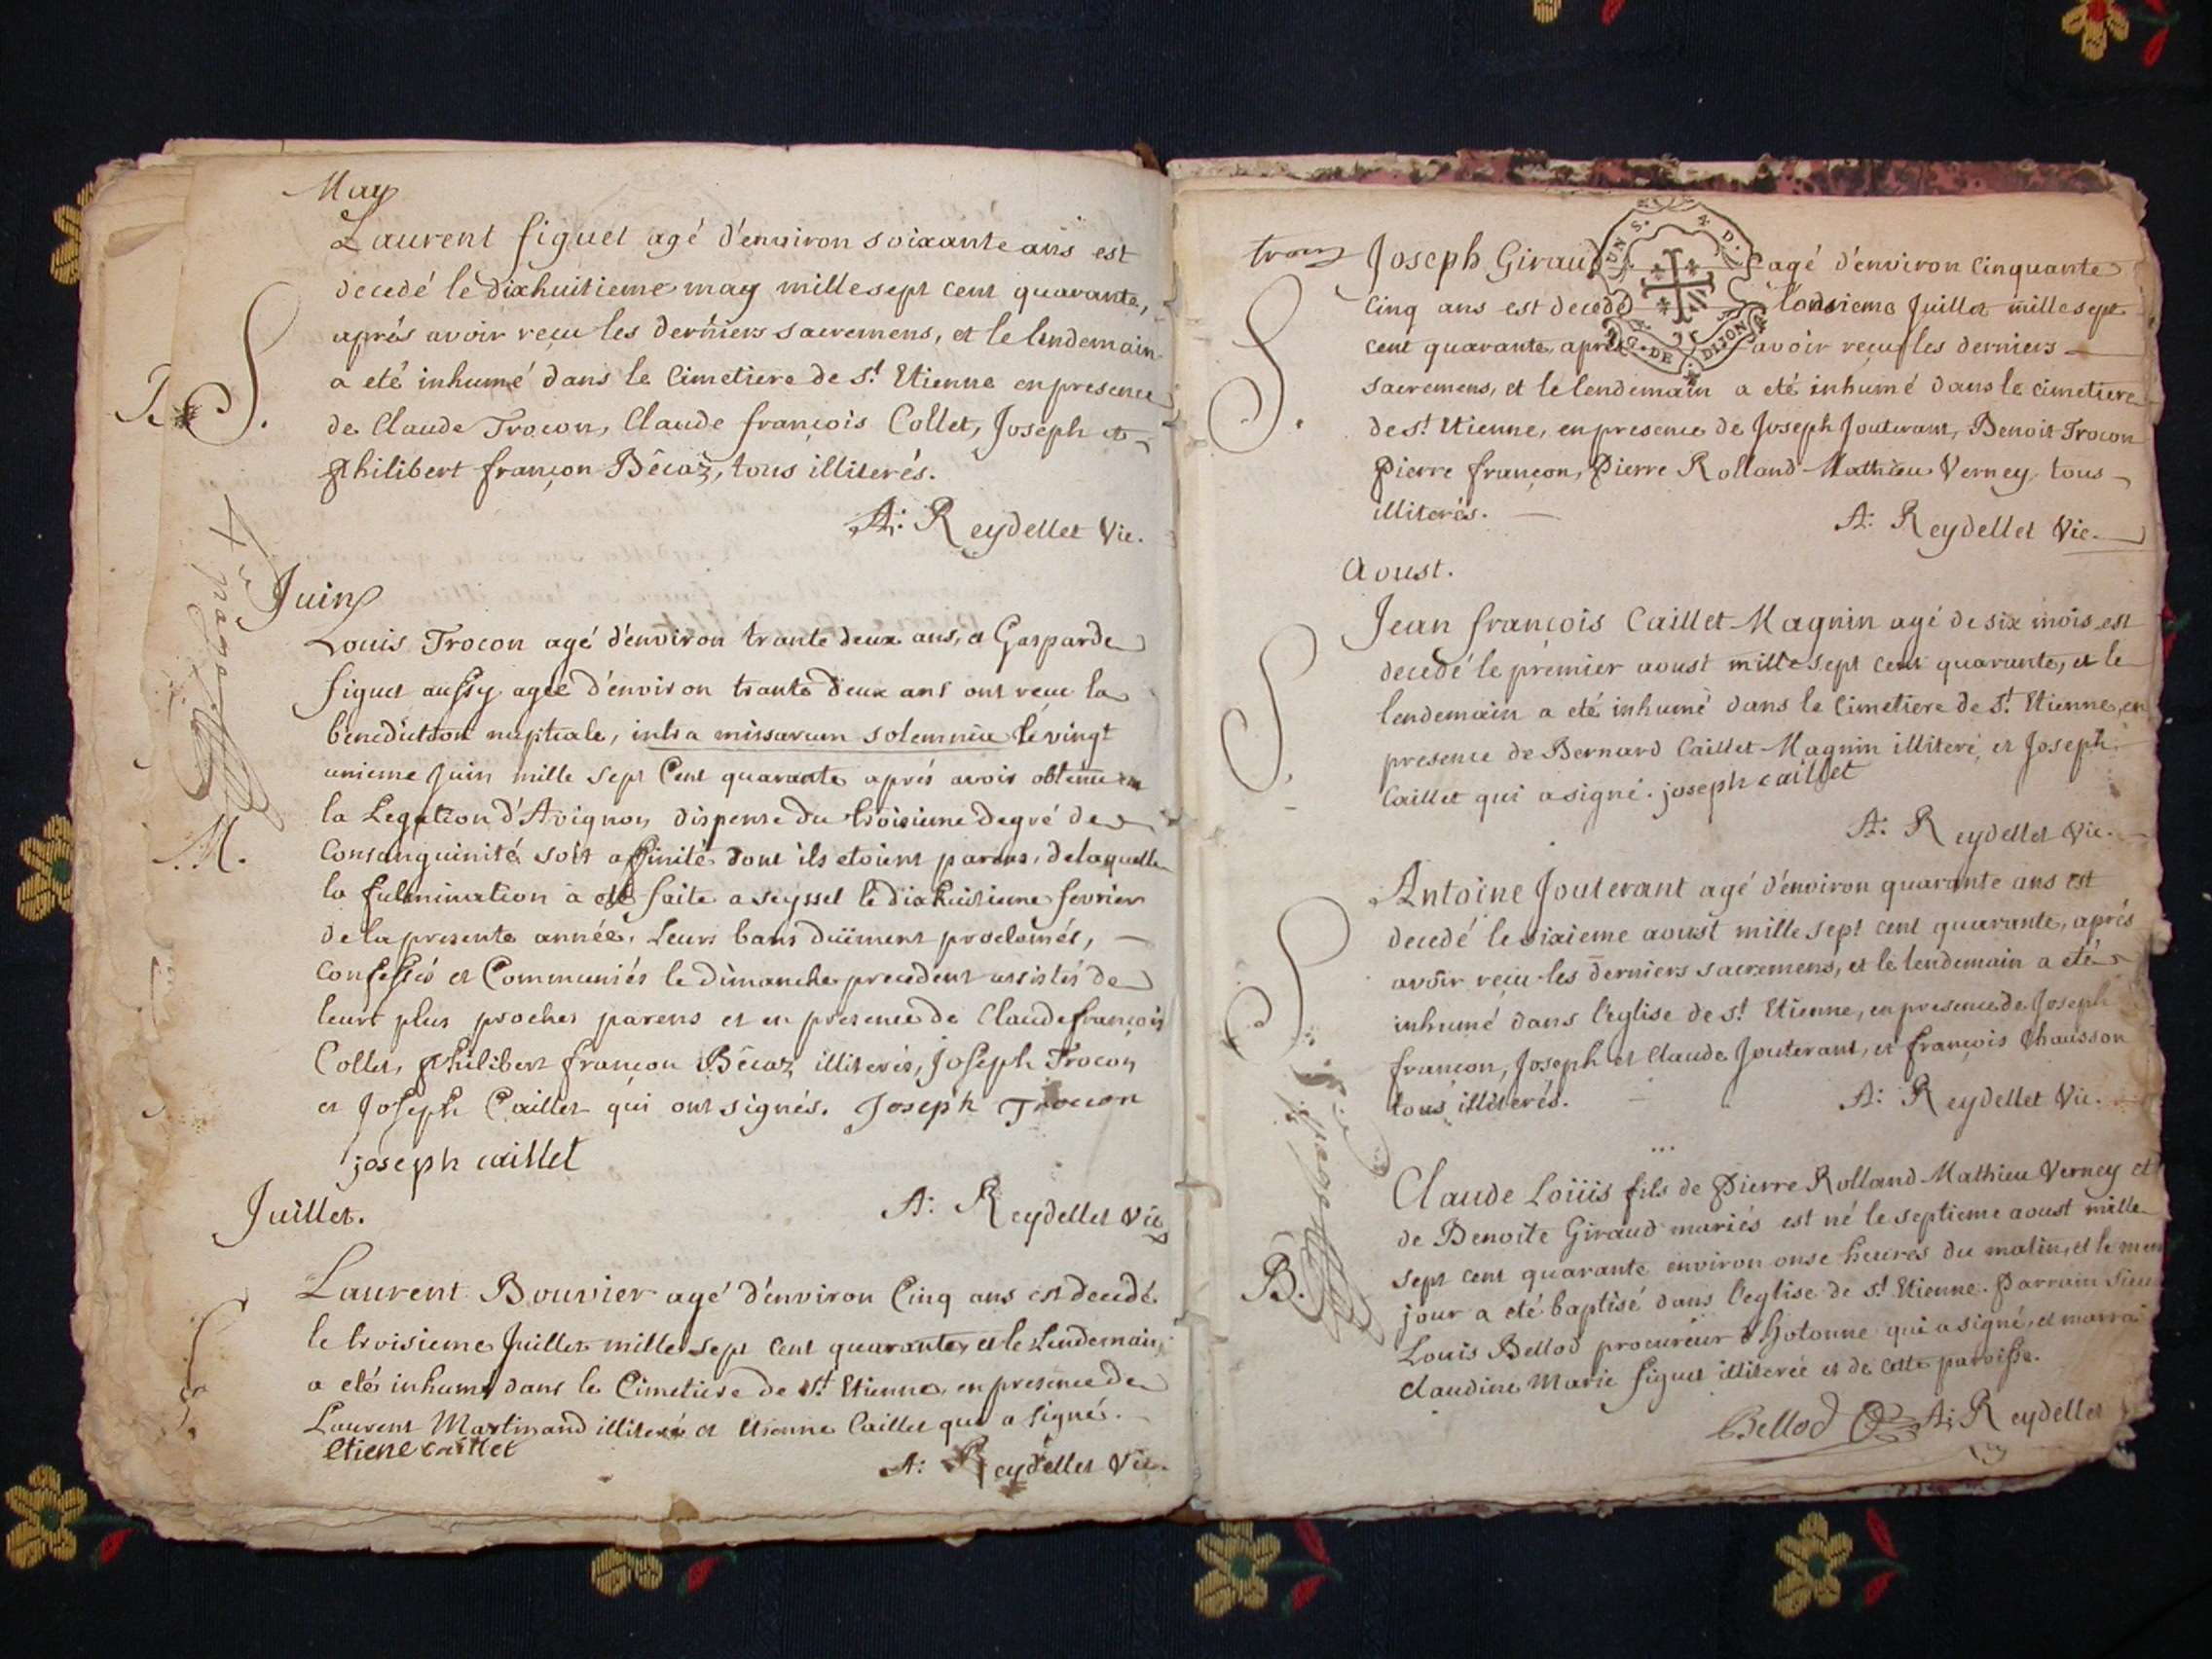 May
Laurent figuet agé d'environ soixante ans est
decedé le dixhuitieme may mille sept cent quarante,
aprés avoir reçu les derniers sacremens, et le lendemain
a eté inhumé dans le Cimetiere de S.t Etienne en presence
S.
de Claude Trocon, Claude françois Collet, Joseph et
philibert françon Bêcaz, tous illiterés.
A: Reydellet Vic.
4e page
Juin
Louis Trocon agé d'environ trante deux ans, et Gasparde
figuet aussy ageé d'environ trante deux ans ont reçu la
benediction nuptiale, intra missarum solemnia le vingt
unieme Juin mille Sept Cent quarante aprés avoir obtenu en
la Legation d'Avignon dispense du troisieme degré de
M.
Consanguinité soit affinité dont ils etoient parens, de laquelle
la fulmination a eté faite a Seyssel le dixhuitieme fevrier
de la presente année. Leurs bans düement proclamés,
Confessés et Communiés le dimanche precedent assistés de
leurs plus proches parens et en presence de Claude françois
Collet, philibert françon Bêcaz illiterés, Joseph Trocon
et Joseph Caillet qui ont signés. Joseph Trocon
joseph caillet
A: Reydellet Vic
Juillet.
Laurent Bouvier agé d'environ Cinq ans est decedé
le troisieme Juillet mille sept cent quarante, et le Lendemain
a eté inhumé dans le Cimetiere de S.t Etienne, en presence de
S.
Laurent Martinand illiteré et Etienne Caillet qui a signé.
etiene caillet
A: Reydellet Vic.
Joseph Giraud agé d'environ Cinquante
UN S. 4 D.
G. DE DIJON
Cinq ans est decedé l'onzieme Juillet mille sept
cent quarante, aprés avoir reçu les derniers
sacremens, et le lendemain a eté inhumé dans le cimetiere
S.
de S.t Etienne, en presence de Joseph Jouterant, Benoit Trocon
Pierre françon, Pierre Rolland-Mathieu Verney tous
illiterés.
A: Reydellet Vic.
Aoust.
Jean françois Caillet-Magnin agé de six mois est
decedé le premier aoust mille sept cent quarante, et le
lendemain a eté inhumé dans le Cimetiere de S.t Etienne, en
S.
presence de Bernard Caillet-Magnin illiteré, et Joseph
Caillet qui a signé. joseph caillet
A: Reydellet Vic.
Antoine Jouterant agé d'environ quarante ans est
decedé le sixieme aoust mille sept cent quarante, aprés
avoir reçu les derniers sacremens, et le lendemain a eté
S.
inhumé dans l'eglise de S.t Etienne, en presence de Joseph
françon, Joseph et Claude Jouterant, et françois Chausson
tous illiterés.
A: Reydellet Vic.
5e page
Claude Loüis fils de Pierre Rolland-Mathieu Verney et
de Benoite Giraud mariés est né le septieme aoust mille
sept cent quarante environ onse heures du matin, et le mem
B.
jour a eté baptisé dans l'eglise de S.t Etienne. Parrain Sieur
Louis Bellod procureur d'hotonne qui a signé, et marrai
claudine Marie figuet illiterée et de cette paroisse.
Bellod A: Reydellet